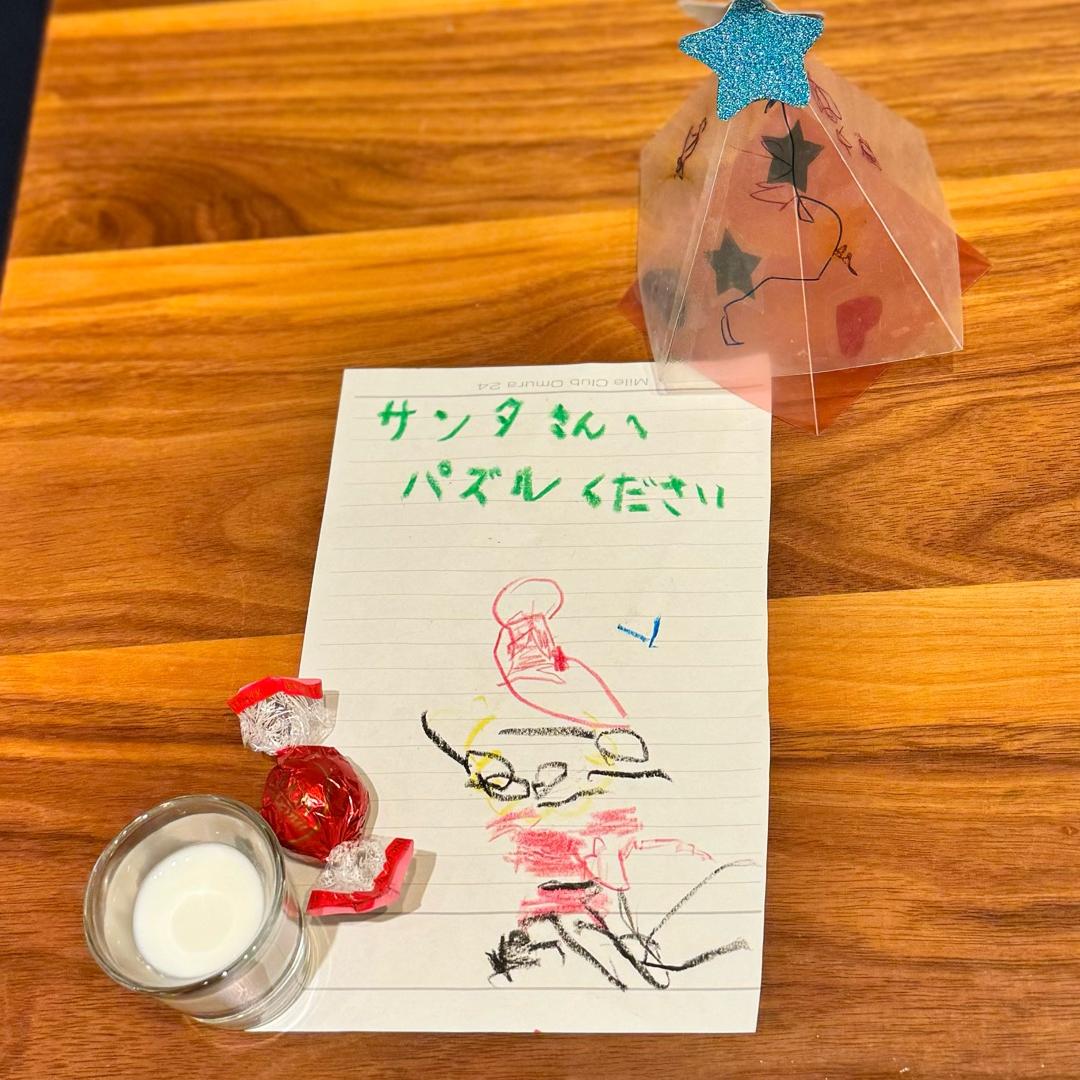 Mile Club Omura 24
サンタさんへ
パズルください